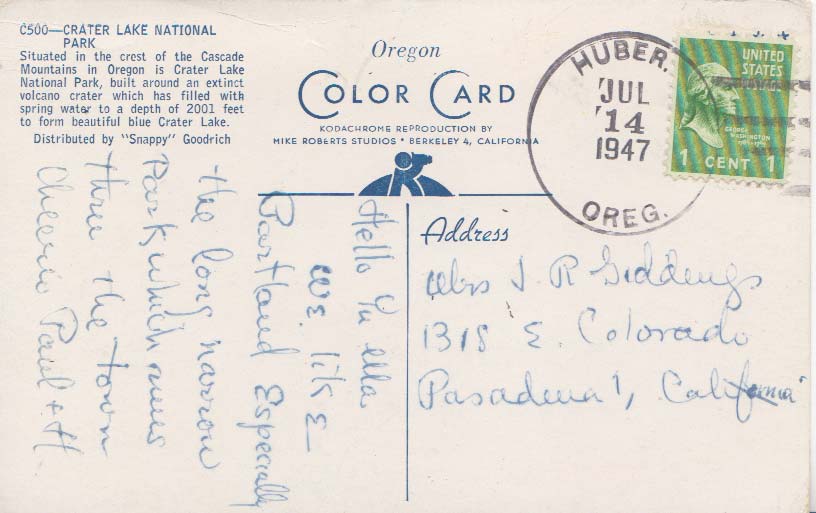 C500—CRATER LAKE NATIONAL
PARK
Situated in the crest of the Cascade
Mountains in Oregon is Crater Lake
National Park, built around an extinct
volcano crater which has filled with
spring water to a depth of 2001 feet
to form beautiful blue Crater Lake.
Distributed by "Snappy" Goodrich
Oregon
COLOR CARD
KODACHROME REPRODUCTION BY
MIKE ROBERTS STUDIOS • BERKELEY 4, CALIFORNIA
R
HUBER, OREG.
JUL
14
1947
UNITED
STATES
GEORGE
WASHINGTON
1 CENT 1
Hello
We like
Portland Especially
the long narrow
Park which runs
thru the town
Cheerio Paul + H
Address
Mrs J R Giddings
1318 E. Colorado
Pasadena 1, California